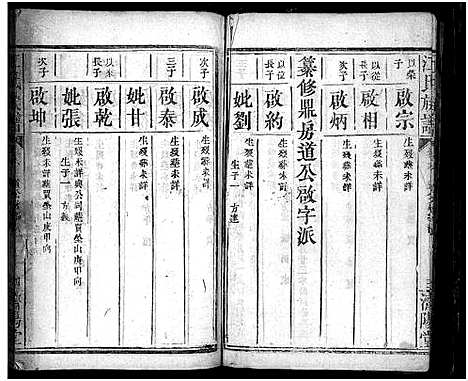 氏族譜
以榮長子
啟宗
生歿葬未詳
以從長子
啟相
生歿葬未詳
啟炳
生歿葬未詳
纂修鼎房道公啟字派
啟約
生歿葬未詳
妣劉
生子一 方達
次子
啟成
生歿葬未詳
三子
啟泰
生歿葬未詳
妣甘
生歿葬未詳
以來長子
啟乾
生歿未詳與公同葬賈桀山庚甲向
妣張
生子一 方義
次子
啟坤
生歿未詳葬賈桀山庚甲向